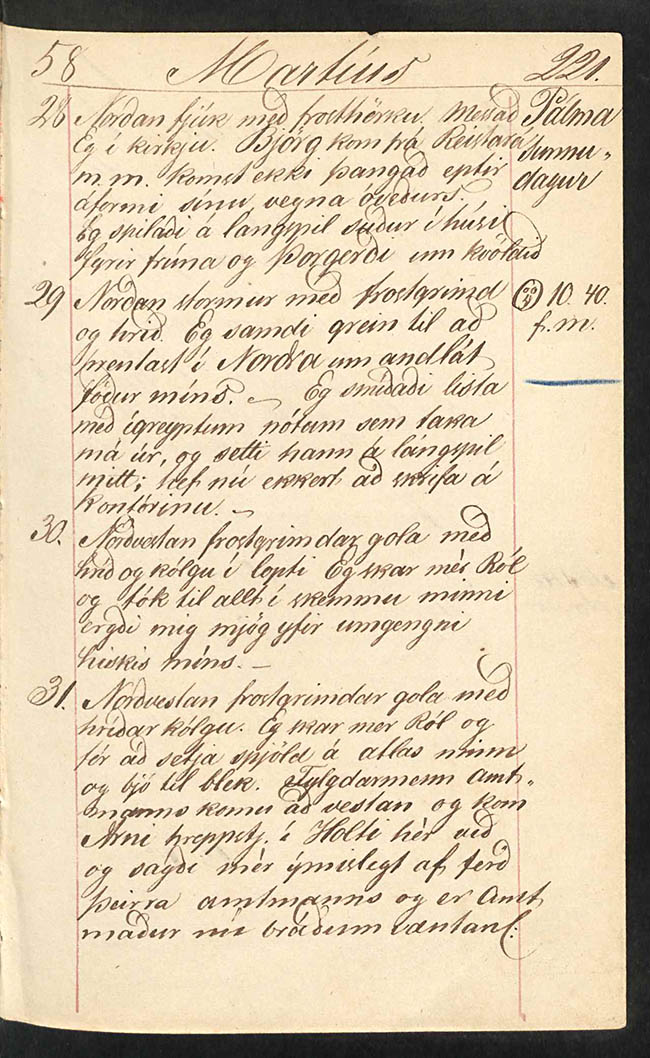 58 Martius 221.
28 Norðan fjúk með frosthörku. Messað Pálma
Eg í kirkju. Björg kom frá Reistará sunnu-
m.m. komst ekki þangað eptir dagur
áformi sínu vegna óveðurs.
Eg spilaði á langspil suður í húsi
fyrir frúna og Þorgerði um kvöldið
29 Norðan stormur með frostgrimd 10. 40.
og hríð. Eg samdi grein til að f.m.
prentast í Norðra um andlát
föður míns. – Eg smíðaði lista
með ígreyptum nótum sem taka
má úr, og setti hann á lángspil
mitt; hef nú ekkert að skrifa á
kontórinu. –
30. Norðvestan frostgrimdar gola með
hríð og kólgu í lopti Eg skar mér Ról
og tók til allt í skemmu minni
ergði mig mjög yfir umgengni
hiskis míns. –
31. Norðvestan frostgrimdar gola með
hríðar kólgu. Eg skar mer Ról og
fór að setja spjöld á atlas minn
og bjó til blek. Fylgdarmenn Amt-
manns komu að vestan og kom
Arni hreppstj. í Holti hér við
og sagði mér ýmislegt af ferð
þeirra amtmanns og er Amt
maður nú bráðum væntanl: